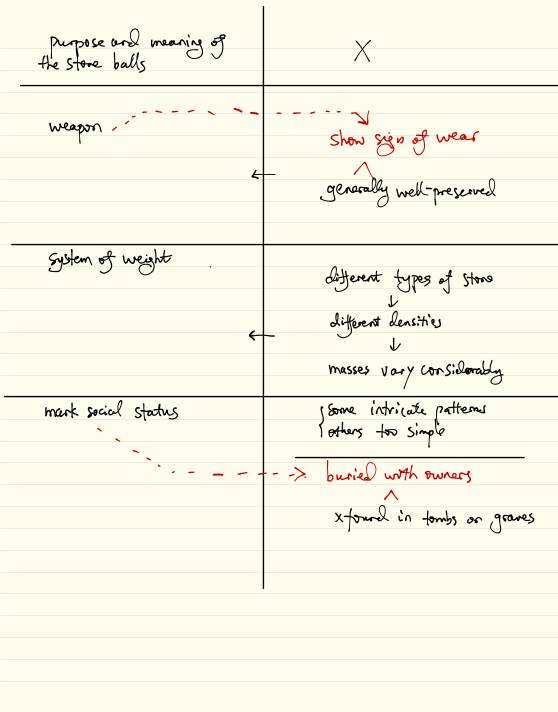 purpose and meaning of
the stone balls
X
weapon
show sign of wear
generally well-preserved
system of weight
different types of stone
different densities
masses vary considerably
mark social status
some intricate patterns
others too simple
buried with owners
x found in tombs or graves